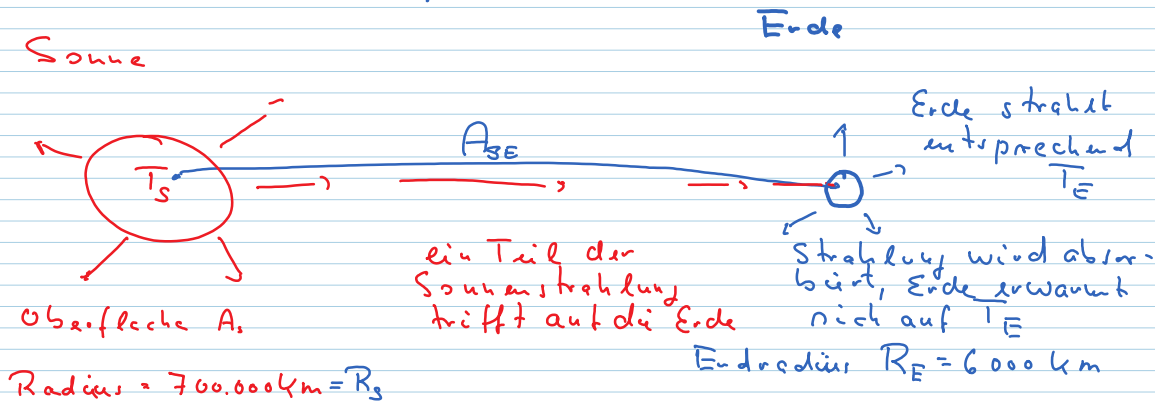 Erde
Sonne
Erde strahlt
entsprechend
T_E
A_SE
T_S
ein Teil der
Sonnenstrahlung
trifft auf die Erde
Strahlung wird absor-
biert, Erde erwärmt
sich auf T_E
Oberfläche A_s
Erdradius R_E = 6000 km
Radius = 700.000 km = R_s